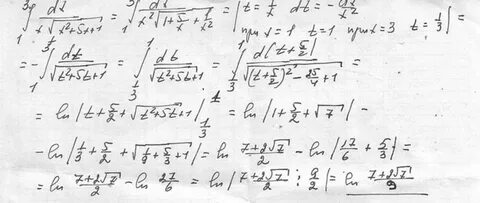 ∫₁³ dx / x√(x²+5x+1) = ∫₁³ dx / x²√(1+5/x+1/x²) = | t = 1/x dt = -dx/x² при x=1 t=1 при x=3 t=1/3 | =
= -∫₁^(1/3) dt / √(t²+5t+1) = ∫_(1/3)^1 dt / √(t²+5t+1) = ∫_(1/3)^1 d(t+5/2) / √((t+5/2)² - 25/4 + 1) =
= ln |t + 5/2 + √(t²+5t+1)| |_(1/3)^1 = ln |1 + 5/2 + √7| -
- ln |1/3 + 5/2 + √(1/9 + 5/3 + 1)| = ln (7+2√7)/2 - ln |17/6 + 5/3| =
= ln (7+2√7)/2 - ln 27/6 = ln |(7+2√7)/2 : 9/2| = ln (7+2√7)/9